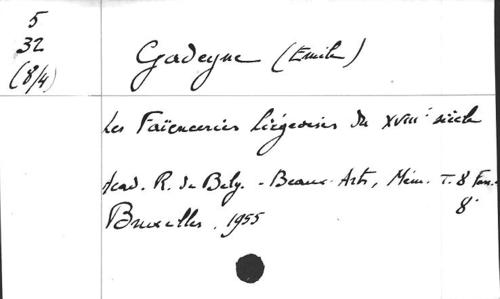 5
32
(8/4)
Gadeyne (Emile)
Les Faïenceries liégeoises du XVIIIe siècle
Acad. R. de Belg. - Beaux-Arts, Mém. T. 8 Fasc.
8°
Bruxelles, 1955